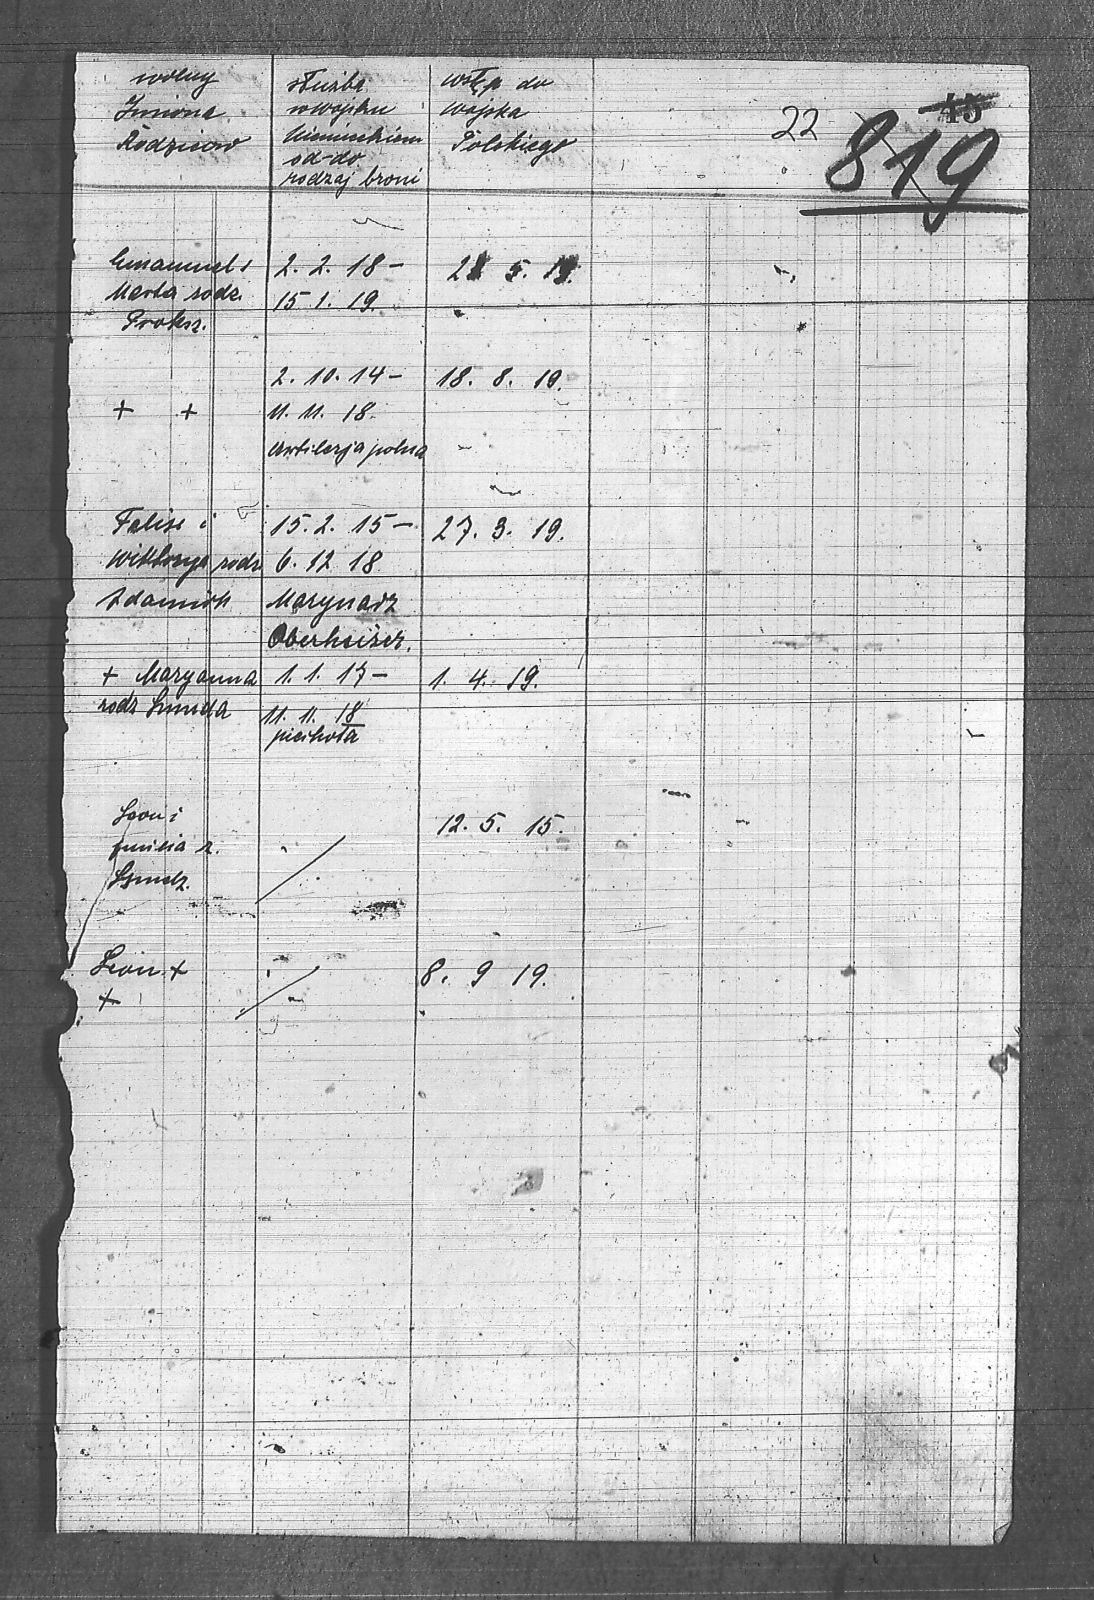 wolny
Imiona
Rodziców
służba
w wojsku
niemieckiem
od-do
rodzaj broni
wstęp do
wojska
Polskiego
22
45
819
Emanuel i
Marta rodz.
Proksz.
2. 2. 18 –
15. 1. 19.
5. 19.
+ +
2. 10. 14 –
11. 11. 18.
artilerja polna
18. 8. 19.
Felise i
Wiktorya rodz
Adamiok
15. 2. 15 –
6. 12 18
Marynarz
Oberheizer.
27. 3. 19.
+ Maryanna
rodz Smuda
1. 1. 17 –
11. 11. 18
piechota
1. 4. 19.
Leon i
r.
12. 5. 15.
Leon +
+
8. 9 19.